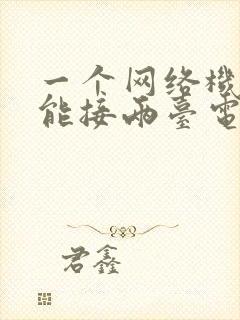 一个网络機
能接兩臺電
君鑫